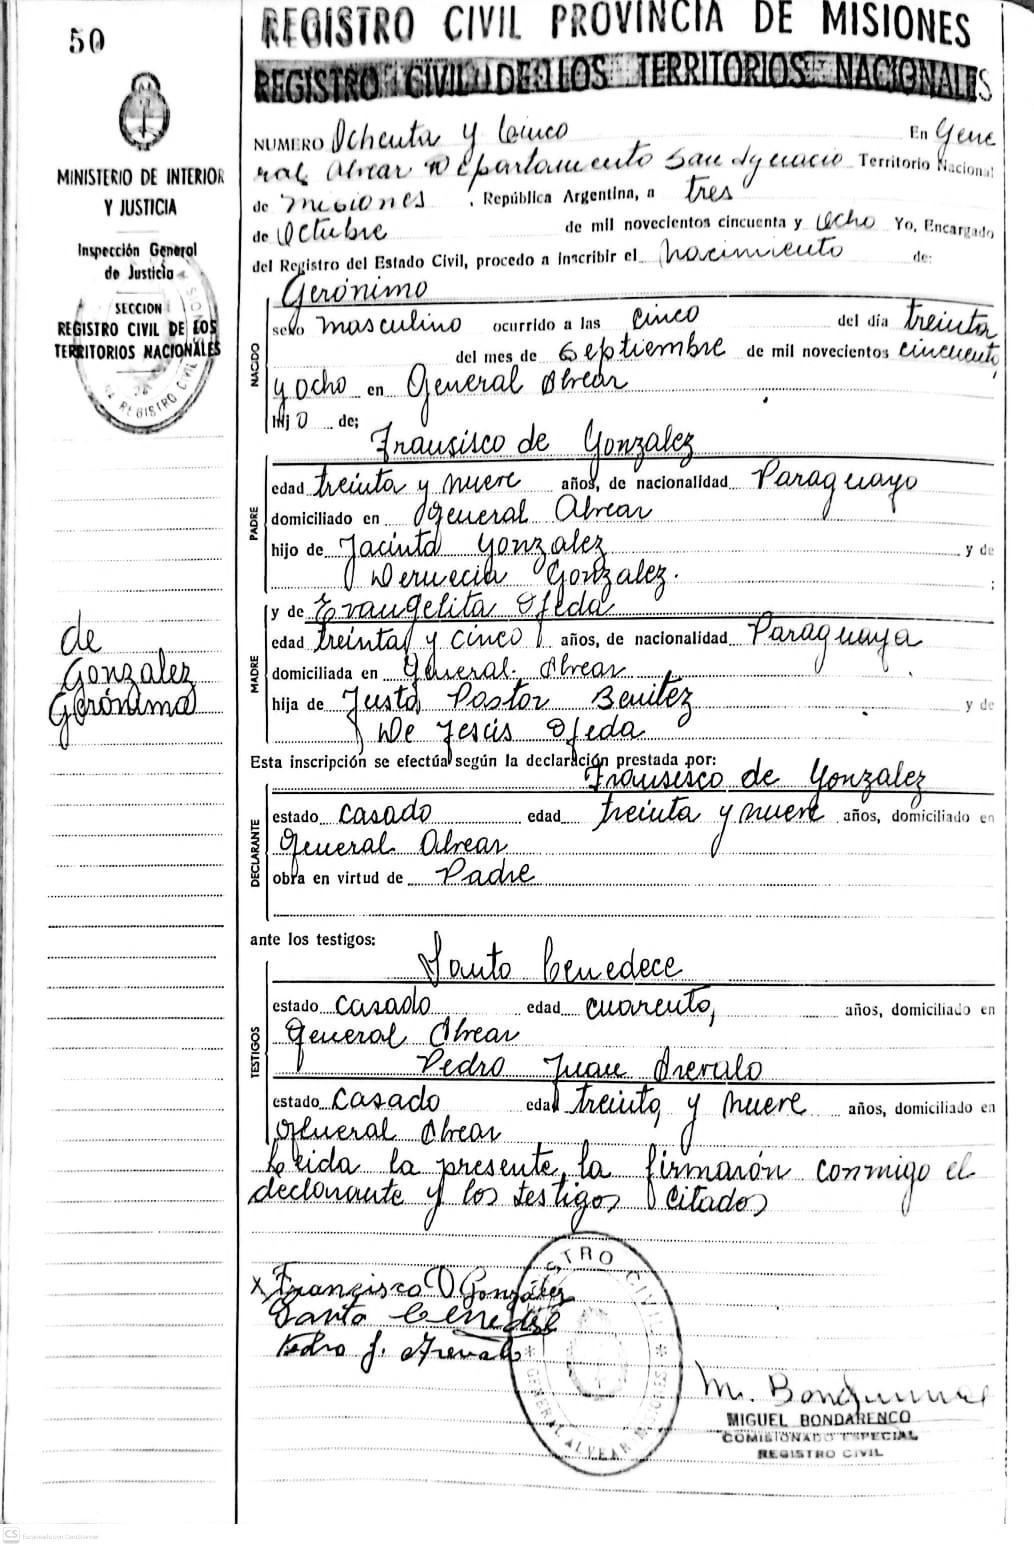 50
REGISTRO CIVIL PROVINCIA DE MISIONES
REGISTRO CIVIL DE LOS TERRITORIOS NACIONALES
MINISTERIO DE INTERIOR
Y JUSTICIA
Inspección General
de Justicia
SECCION
REGISTRO CIVIL DE LOS
TERRITORIOS NACIONALES
REGISTRO CIVIL
NUMERO Ochenta y Cinco En Gene
ral Alvear Departamento San Ignacio Territorio Nacional
de Misiones, República Argentina, a tres
de Octubre de mil novecientos cincuenta y Ocho Yo, Encargado
del Registro del Estado Civil, procedo a inscribir el Nacimiento de:
Gerónimo
NACIDO
sexo masculino ocurrido a las cinco del día treinta
del mes de Septiembre de mil novecientos cincuenta
y ocho en General Alvear
hijo de;
Fransisco de Gonzalez
PADRE
edad treinta y nueve años, de nacionalidad Paraguayo
domiciliado en General Alvear
hijo de Jacinta Gonzalez y de
Gonzalez. ;
y de Evangelita Ojeda
MADRE
edad treinta y cinco años, de nacionalidad Paraguaya
domiciliada en General Alvear
hija de Justa Pastor Benitez y de
De Jesús Ojeda
de
Gonzalez
Gerónimo
Esta inscripción se efectúa según la declaración prestada por:
Fransisco de Gonzalez
DECLARANTE
estado casado edad treinta y nueve años, domiciliado en
General Alvear
obra en virtud de Padre
ante los testigos:
Santo Cenedece
TESTIGOS
estado casado edad cuarenta, años, domiciliado en
General Alvear
Pedro Juan Arevalo
estado casado edad treinta y nueve años, domiciliado en
General Alvear
Leida la presente, la firmarón conmigo el
declarante y los testigos citados
x Francisco D González
Santo Cenedese
Pedro J. Arevalo
REGISTRO CIVIL
GENERAL ALVEAR MISIONES
M. Bondarenco
MIGUEL BONDARENCO
COMISIONADO ESPECIAL
REGISTRO CIVIL
CS Escaneado con CamScanner